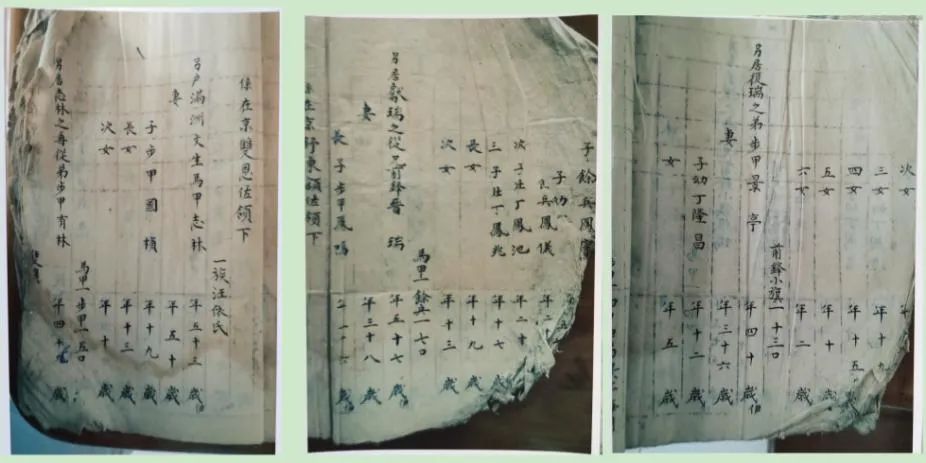 係在京雙恩佐領下
一族汪依氏
另户滿洲文生馬甲志林 年五十三歲
妻 年五十歲
子步甲國楨 年十九歲
長女 年十三歲
次女 年十歲
馬甲一步甲一五口
另居志林之再從弟步甲有林 年四十 歲
子餘兵鳳
子幼
兵鳳儀 年二
次子壯丁鳳池 年二十歲
三子壯丁鳳兆 年十 歲
長女 年十九歲
次女 年十三歲
馬甲一餘兵一七口
另居獻瑞之從兄前鋒晉瑞 年五十七歲
妻 年三十八歲
長子步甲鳳鳴 年二十六歲
係在京 東 佐領下
次女 年
三女 年十 歲
四女 年十五歲
五女 年十歲
六女 年二歲
前鋒小旗一十三口
另居復瑞之弟步甲景亭 年四十歲
妻 年三十六歲
子幼丁隆昌 年十二歲
女 年五歲